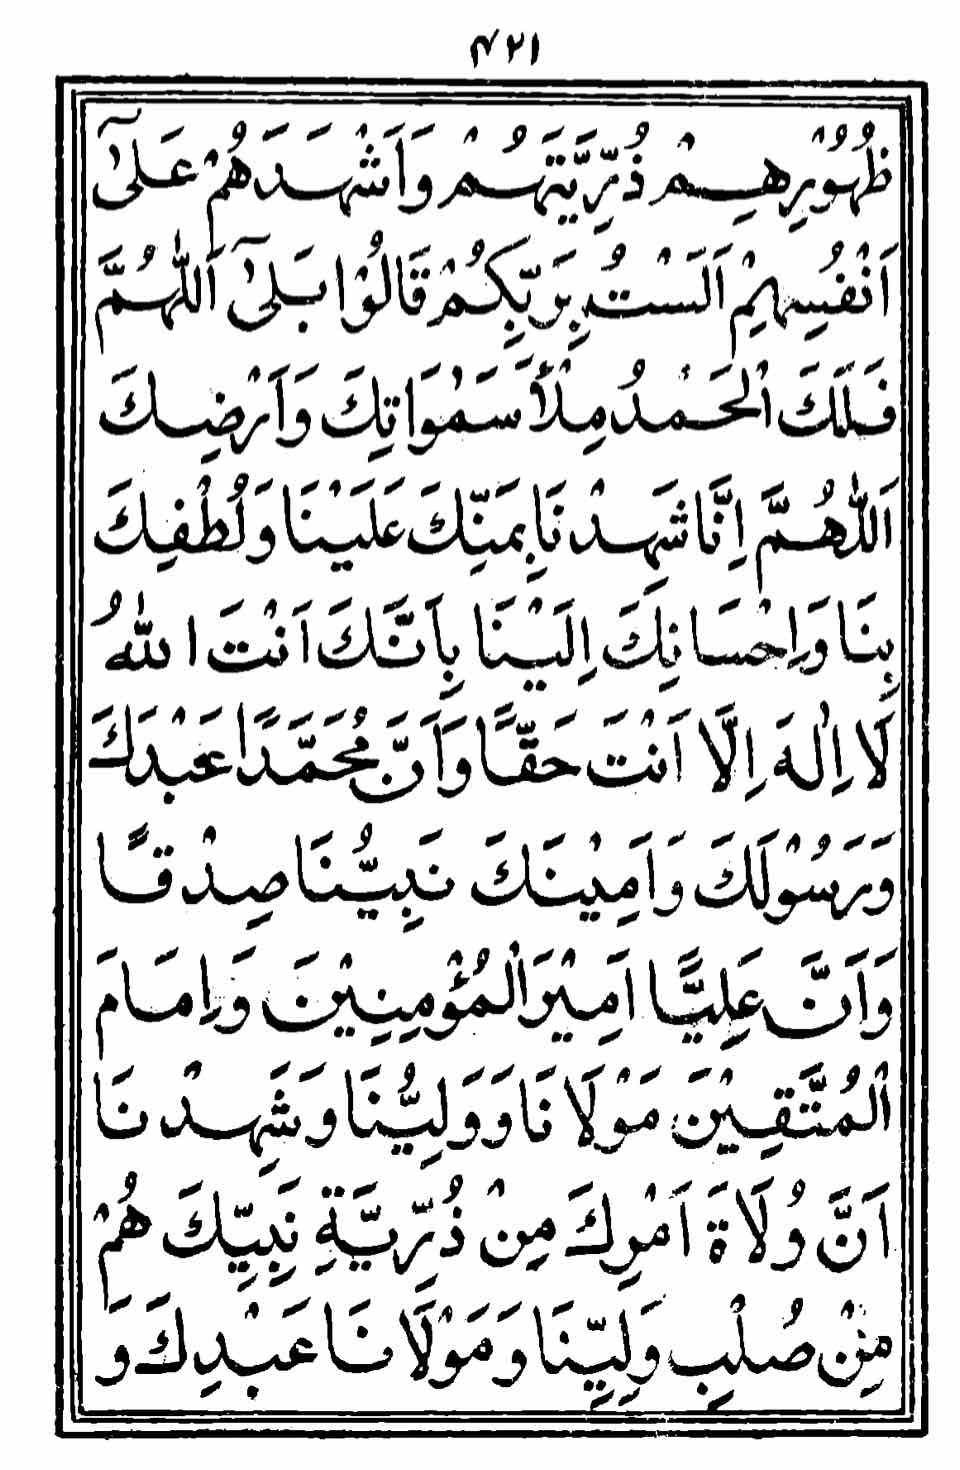 ۴۲۱
ظُهُوْرِهِمْ ذُرِّيَّتَهُمْ وَاَشْهَدَهُمْ عَلىٰٓ
اَنْفُسِهِمْ اَلَسْتُ بِرَبِّكُمْ قَالُوْا بَلىٰٓ اَللّٰهُمَّ
فَلَكَ الْحَمْدُ مِلْأَ سَمٰوَاتِكَ وَاَرْضِكَ
اَللّٰهُمَّ اِنَّا شَهِدْنَا بِمَنِّكَ عَلَيْنَا وَلُطْفِكَ
بِنَا وَاِحْسَانِكَ اِلَيْنَا بِاَنَّكَ اَنْتَ اللّٰهُ
لَا اِلٰهَ اِلَّا اَنْتَ حَقًّا وَاَنَّ مُحَمَّدًا عَبْدَكَ
وَرَسُوْلَكَ وَاَمِيْنَكَ نَبِيُّنَا صِدْقًا
وَاَنَّ عَلِيًّا اَمِيْرَ الْمُؤْمِنِيْنَ وَاِمَامَ
الْمُتَّقِيْنَ مَوْلَانَا وَوَلِيُّنَا وَشَهِدْنَا
اَنَّ وُلَاةَ اَمْرِكَ مِنْ ذُرِّيَّةِ نَبِيِّكَ هُمْ
مِنْ صُلْبِ وَلِيِّنَا وَمَوْلَانَا عَبْدِكَ وَ